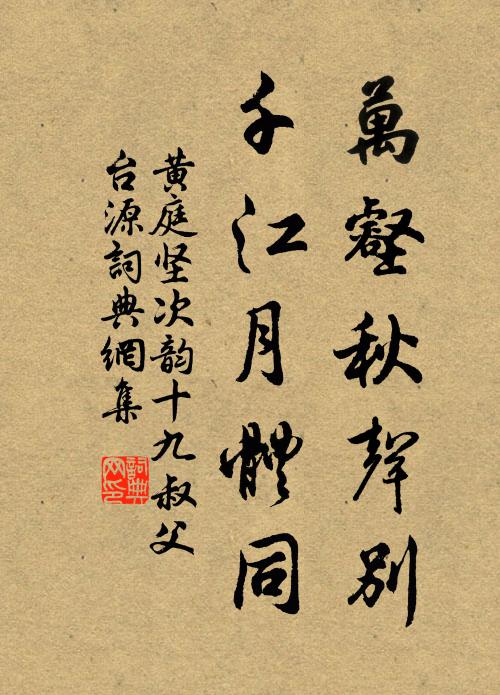 萬壑秋聲別
千江月體同
黄庭坚次韵十九叔父
台源詞典網集
詞典網印